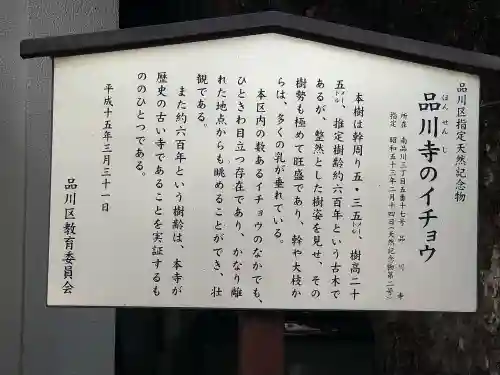 品川区指定天然記念物
ほんせんじ
品川寺のイチョウ
所在 南品川三丁目五番十七号 品川寺
指定 昭和五十三年二月十四日(天然記念物第二号)
本樹は幹周り五・三五㍍、樹高二十
五㍍、推定樹齢約六百年という古木で
あるが、整然とした樹姿を見せ、その
樹勢も極めて旺盛であり、幹や大枝か
らは、多くの乳が垂れている。
本区内の数あるイチョウのなかでも、
ひときわ目立つ存在であり、かなり離
れた地点からも眺めることができ、壮
観である。
また約六百年という樹齢は、本寺が
歴史の古い寺であることを実証するも
ののひとつである。
平成十五年三月三十一日
品川区教育委員会